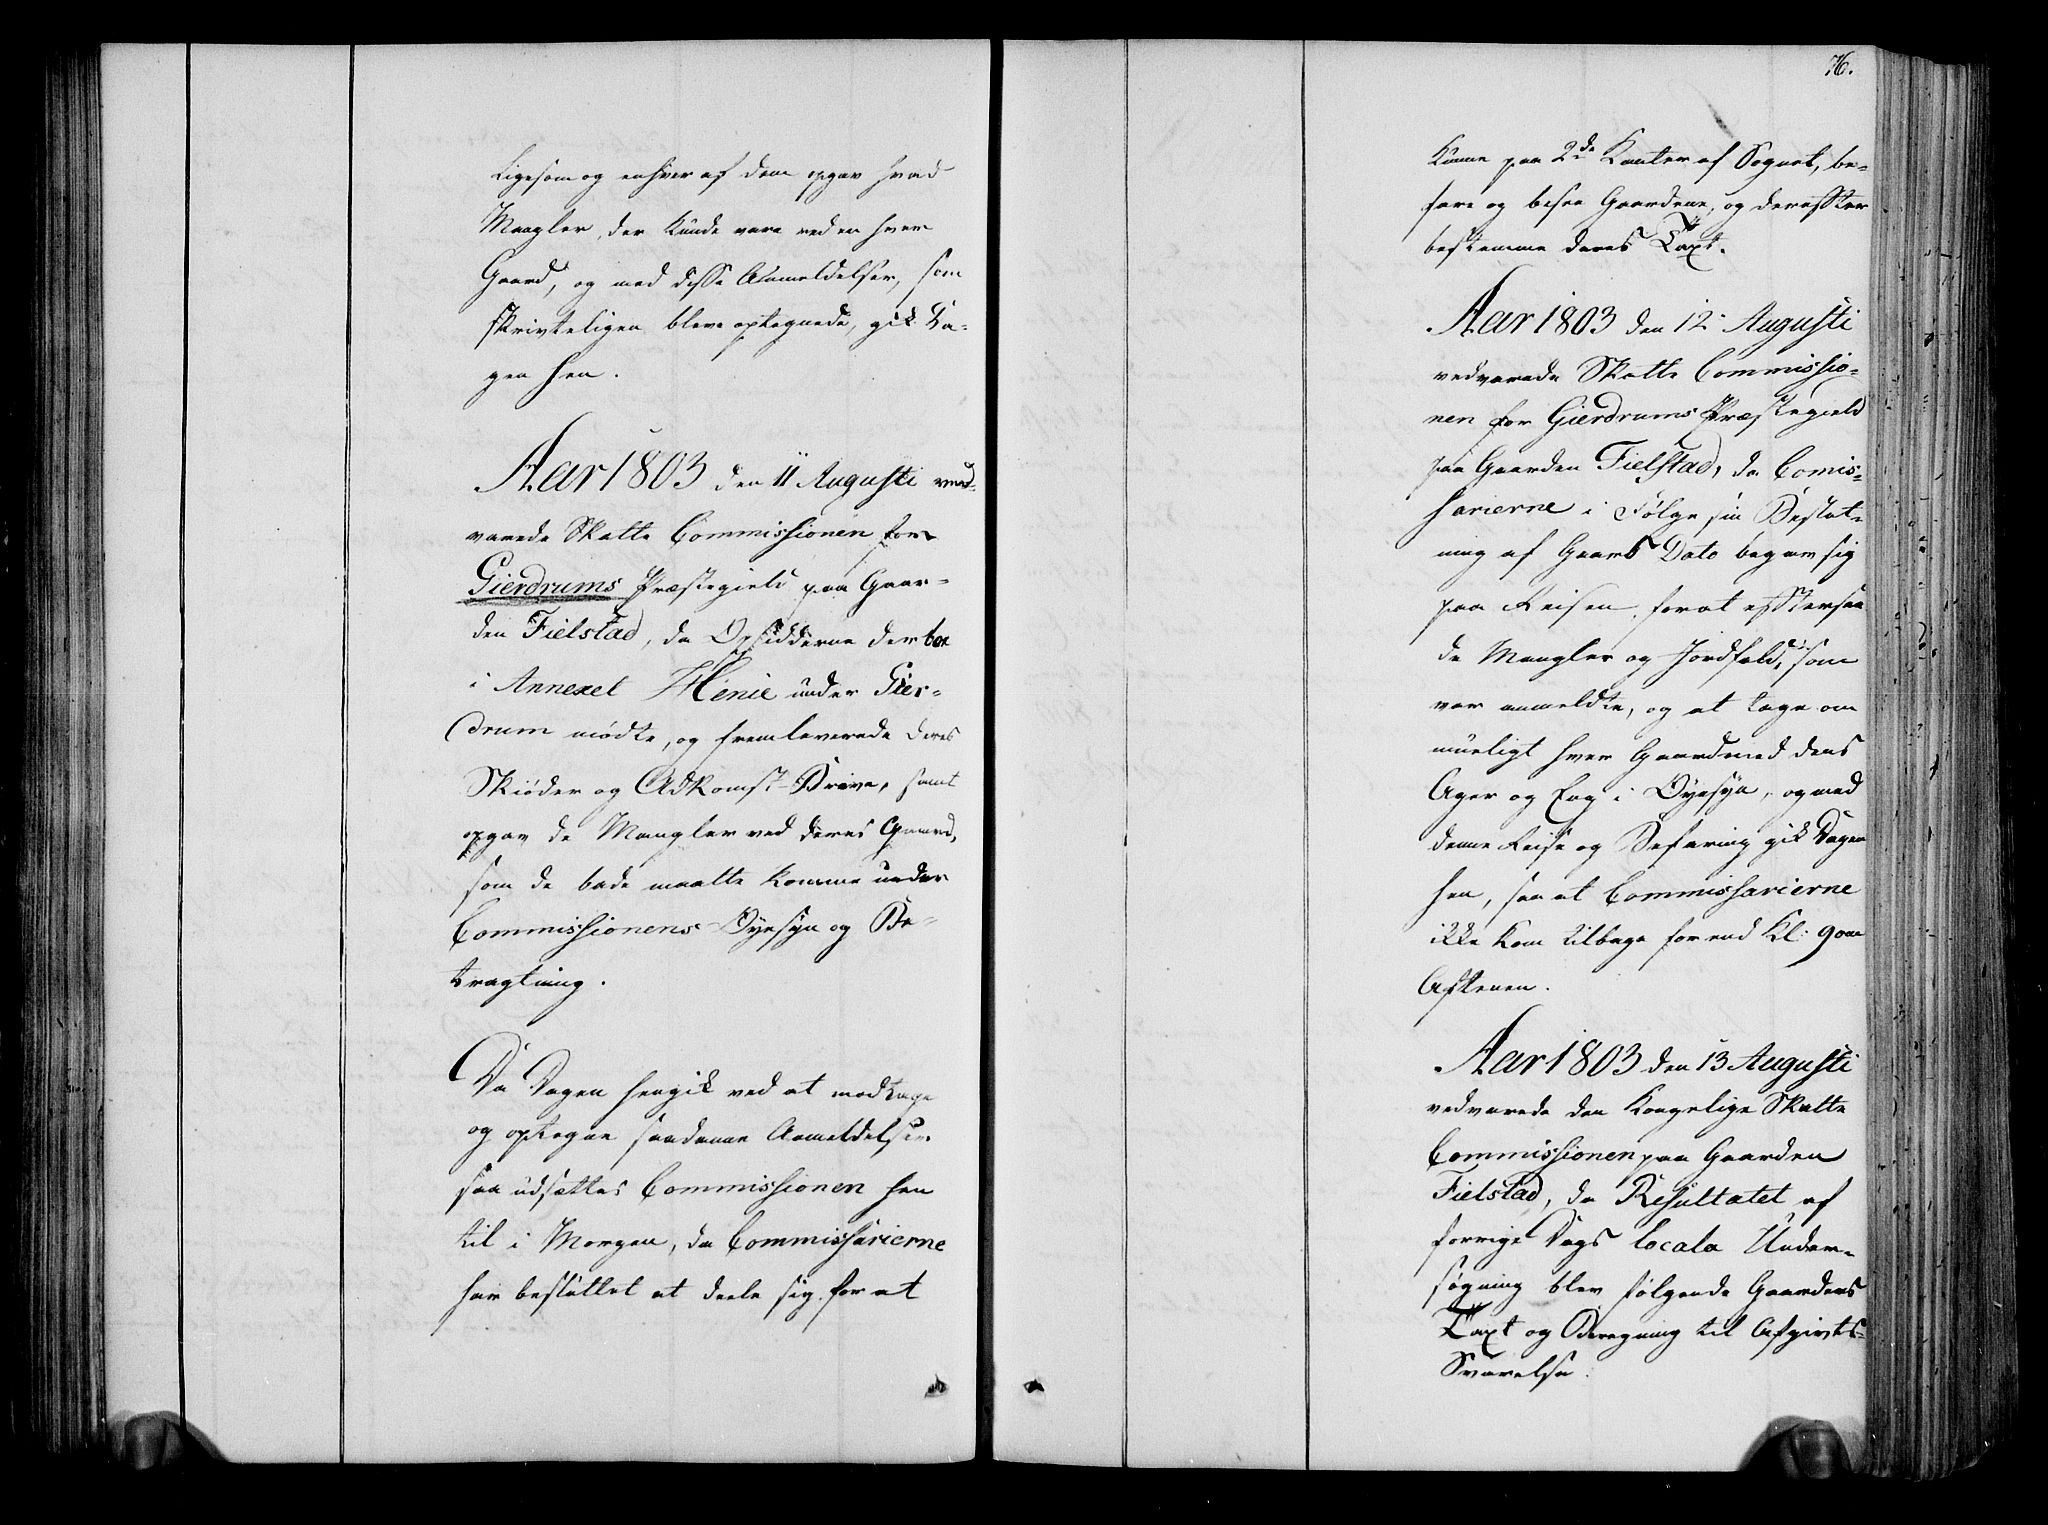 Ligesom og enhver af dem opgav hvad
Mangler, der kunde være ved en hver
Gaard, og med disse Anmeldelser, som
skrivteligen bleve optegnede, gik Da-
gen hen.
Aar 1803 den 11 Augusti ved-
varede Skatte Commissionen for
Gierdrums Præstegield paa Gaar-
den Fielstad, da Opsidderne der boe
i Annexet Hënie under Gier-
drum mødte, og fremleverede deres
Skiøder og Adkomst-Breve, samt
opgav de Mangler ved deres Gaard,
som de bade maatte komme under
Commissionens Øyesyn og Be-
tragtning.
Da Dagen hengik ved at modtage
og optegne saadanne Anmeldelser
saa udsættes Commissionen hen
til i Morgen, da Commissarierne
har besluttet at deele sig for at
76.
kunne paa 2de Kanter af Sognet, be-
fare og besee Gaardene, og derefter
bestemme deres Taxt.
Aar 1803 den 12 Augusti
vedvarede Skatte Commissio-
nen for Gierdrums Præstegield
paa Gaarden Fielstad, da Comis-
sarierne i Følge sin Beslut-
ning af Gaars Dato begav sig
paa Reisen for at eftersee
de Mangler og Jordfald, som
var anmeldte, og at tage om
mueligt hver Gaard med dens
Ager og Eng i Øyesyn, og med
denne Reise og Befaring gik Dagen
hen, saa at Commissarierne
ikke kom tilbage forend Kl: 9 om
Aftenen.
Aar 1803 den 13 Augusti
vedvarede den Kongelige Skatte
Commissionen paa Gaarden
Fielstad, da Resultatet af
forrige Dags locale Under-
søgning blev følgende Gaarders
Taxt og Beregning til Afgivts-
Svarelse: